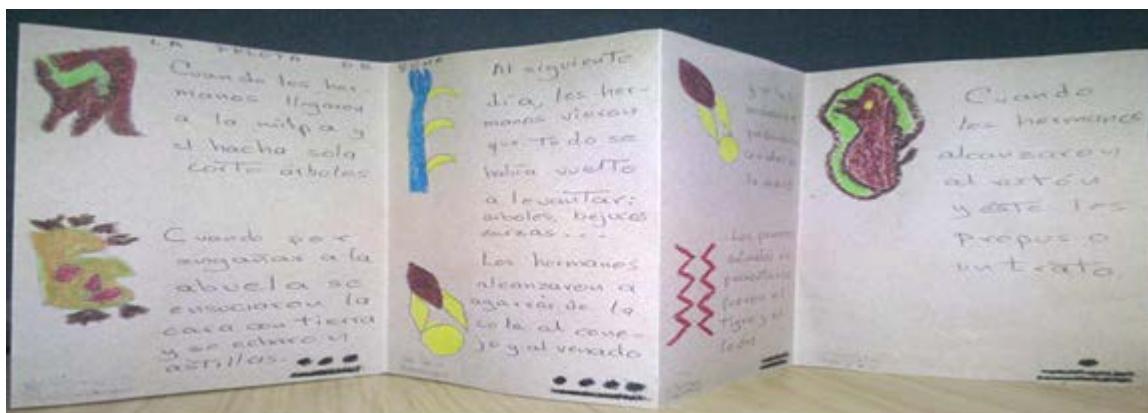 LA PELOTA DE GOMA
Cuando los her-
manos llegaron
a la milpa y
el hacha sola
corto arboles
Cuando por
engañar a la
abuela se
ensuciaron la
cara con tierra
y se echaron
astillas.
Al siguiente
día, los her-
manos vieron
que todo se
había vuelto
a levantar:
arboles, bejucos
zarzas...
Los hermanos
alcanzaron a
agarrar de la
cola al cone-
jo y al venado
Los primeros
animales en
presentarse
fueron el
tigre y el
león
Cuando
los hermanos
alcanzaron
al ratón
y este les
propuso
un trato.